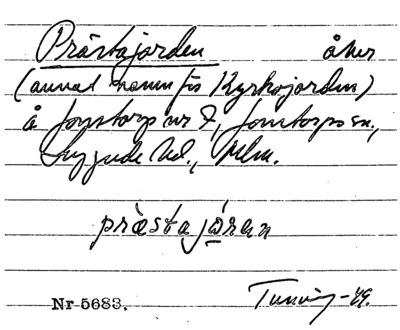 Prästajorden åker
(annat namn för Kyrkojorden)
å Jonstorp nr 7, Jonstorps sn,
Luggude hd., Mlm.
prästajo̲ran
Nr 5683. Tuneving -49.